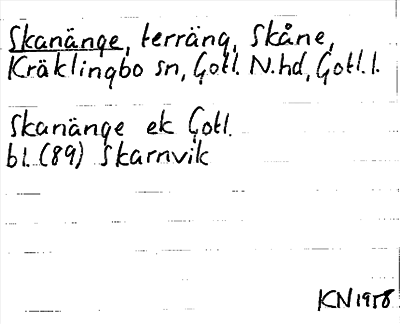 Skanänge, terräng, Skåne,
Kräklingbo sn, Gotl. N.hd, Gotl. l.
Skanänge ek Gotl.
bl. (89) Skarnvik
KN 1958